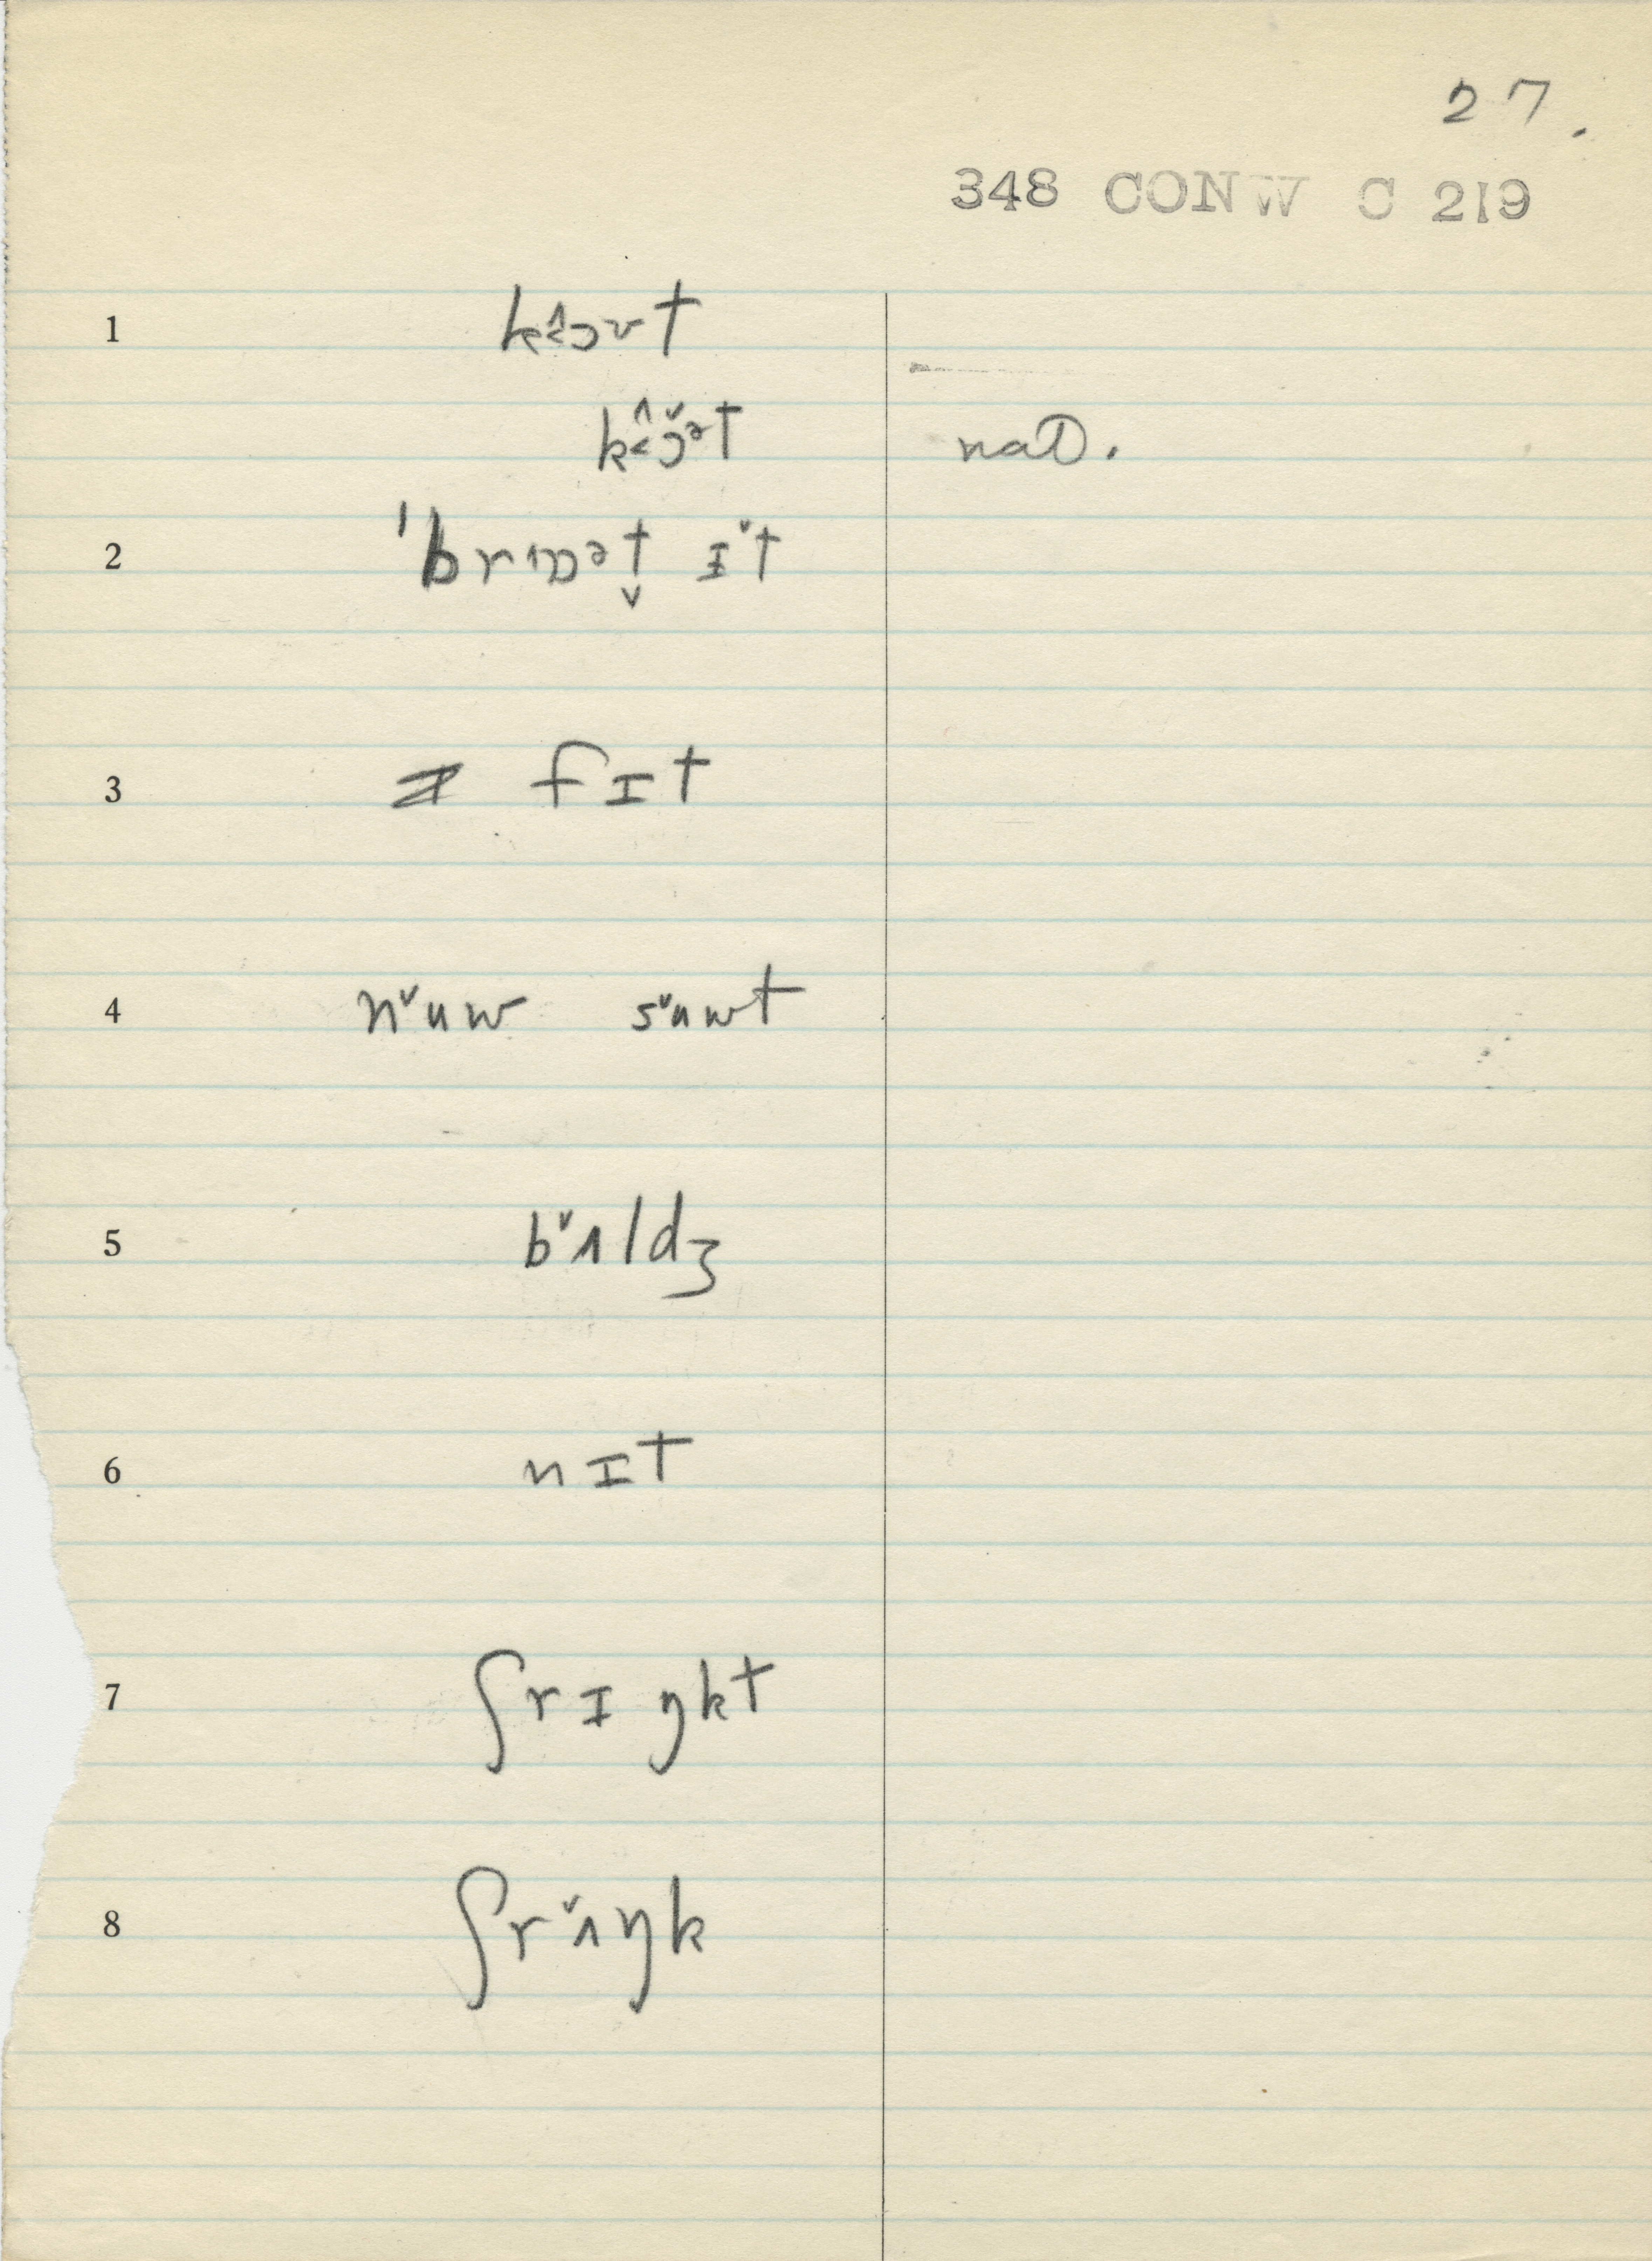 27.
348 CONW C 219
1 k<^ɔvt
k<^ɔ̌ᵊt naD.
2 ˈbrɪɒᵊt̬ ɪˇt
3 fɪt
4 nˇuw sˇuwt
5 bˇʌldʒ
6 nɪt
7 ʃrɪŋkt
8 ʃrˇʌŋk